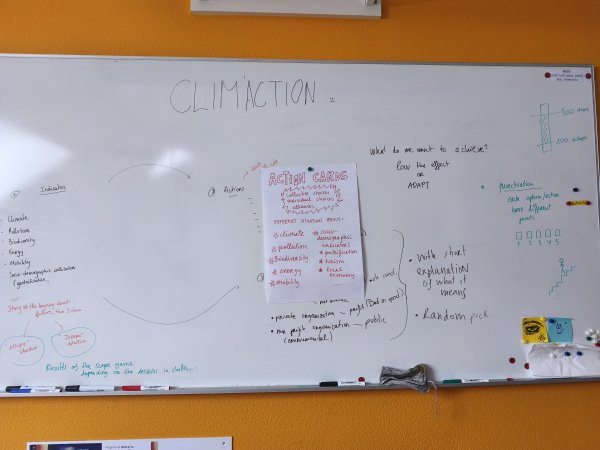 CLIM'ACTION
① Indicators
Climate
Pollutions
Biodiversity
Energy
Mobility
Socio demographic indicators
(gentrification,
Story at the beginning about
future, then 2 choices
situation
Dream
situation
Results of the escape game
depending on the actions in
② Actions
ACTION CARDS
collective choices
individual choices
alliances
DIFFERENT SITUATIONS ABOUT:
* climate
* pollution
* Biodiversity
* energy
* mobility
* socio-
demographic
indicators
* gentrification
* tourism
* local
economy
...
• private organization – profit (Bad or good)
• non profit organization – public
(environmental)
• With short
explanation
of what it
means
• Random pick
What do we want to achieve?
Low the effect
OR
ADAPT
punctuation
each option/action
have different
points
1 2 3 4 5
500
100